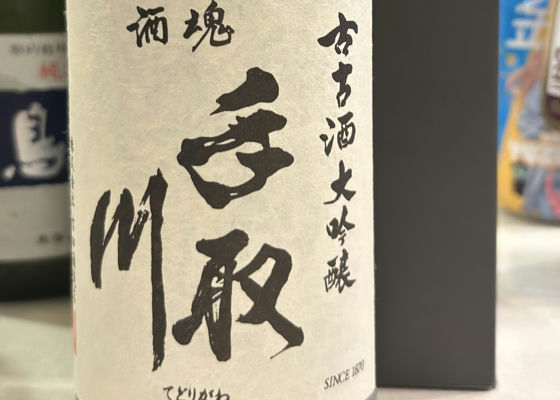 酒魂
古古酒大吟醸
手取
川
てどりがわ
SINCE 1870
鳥